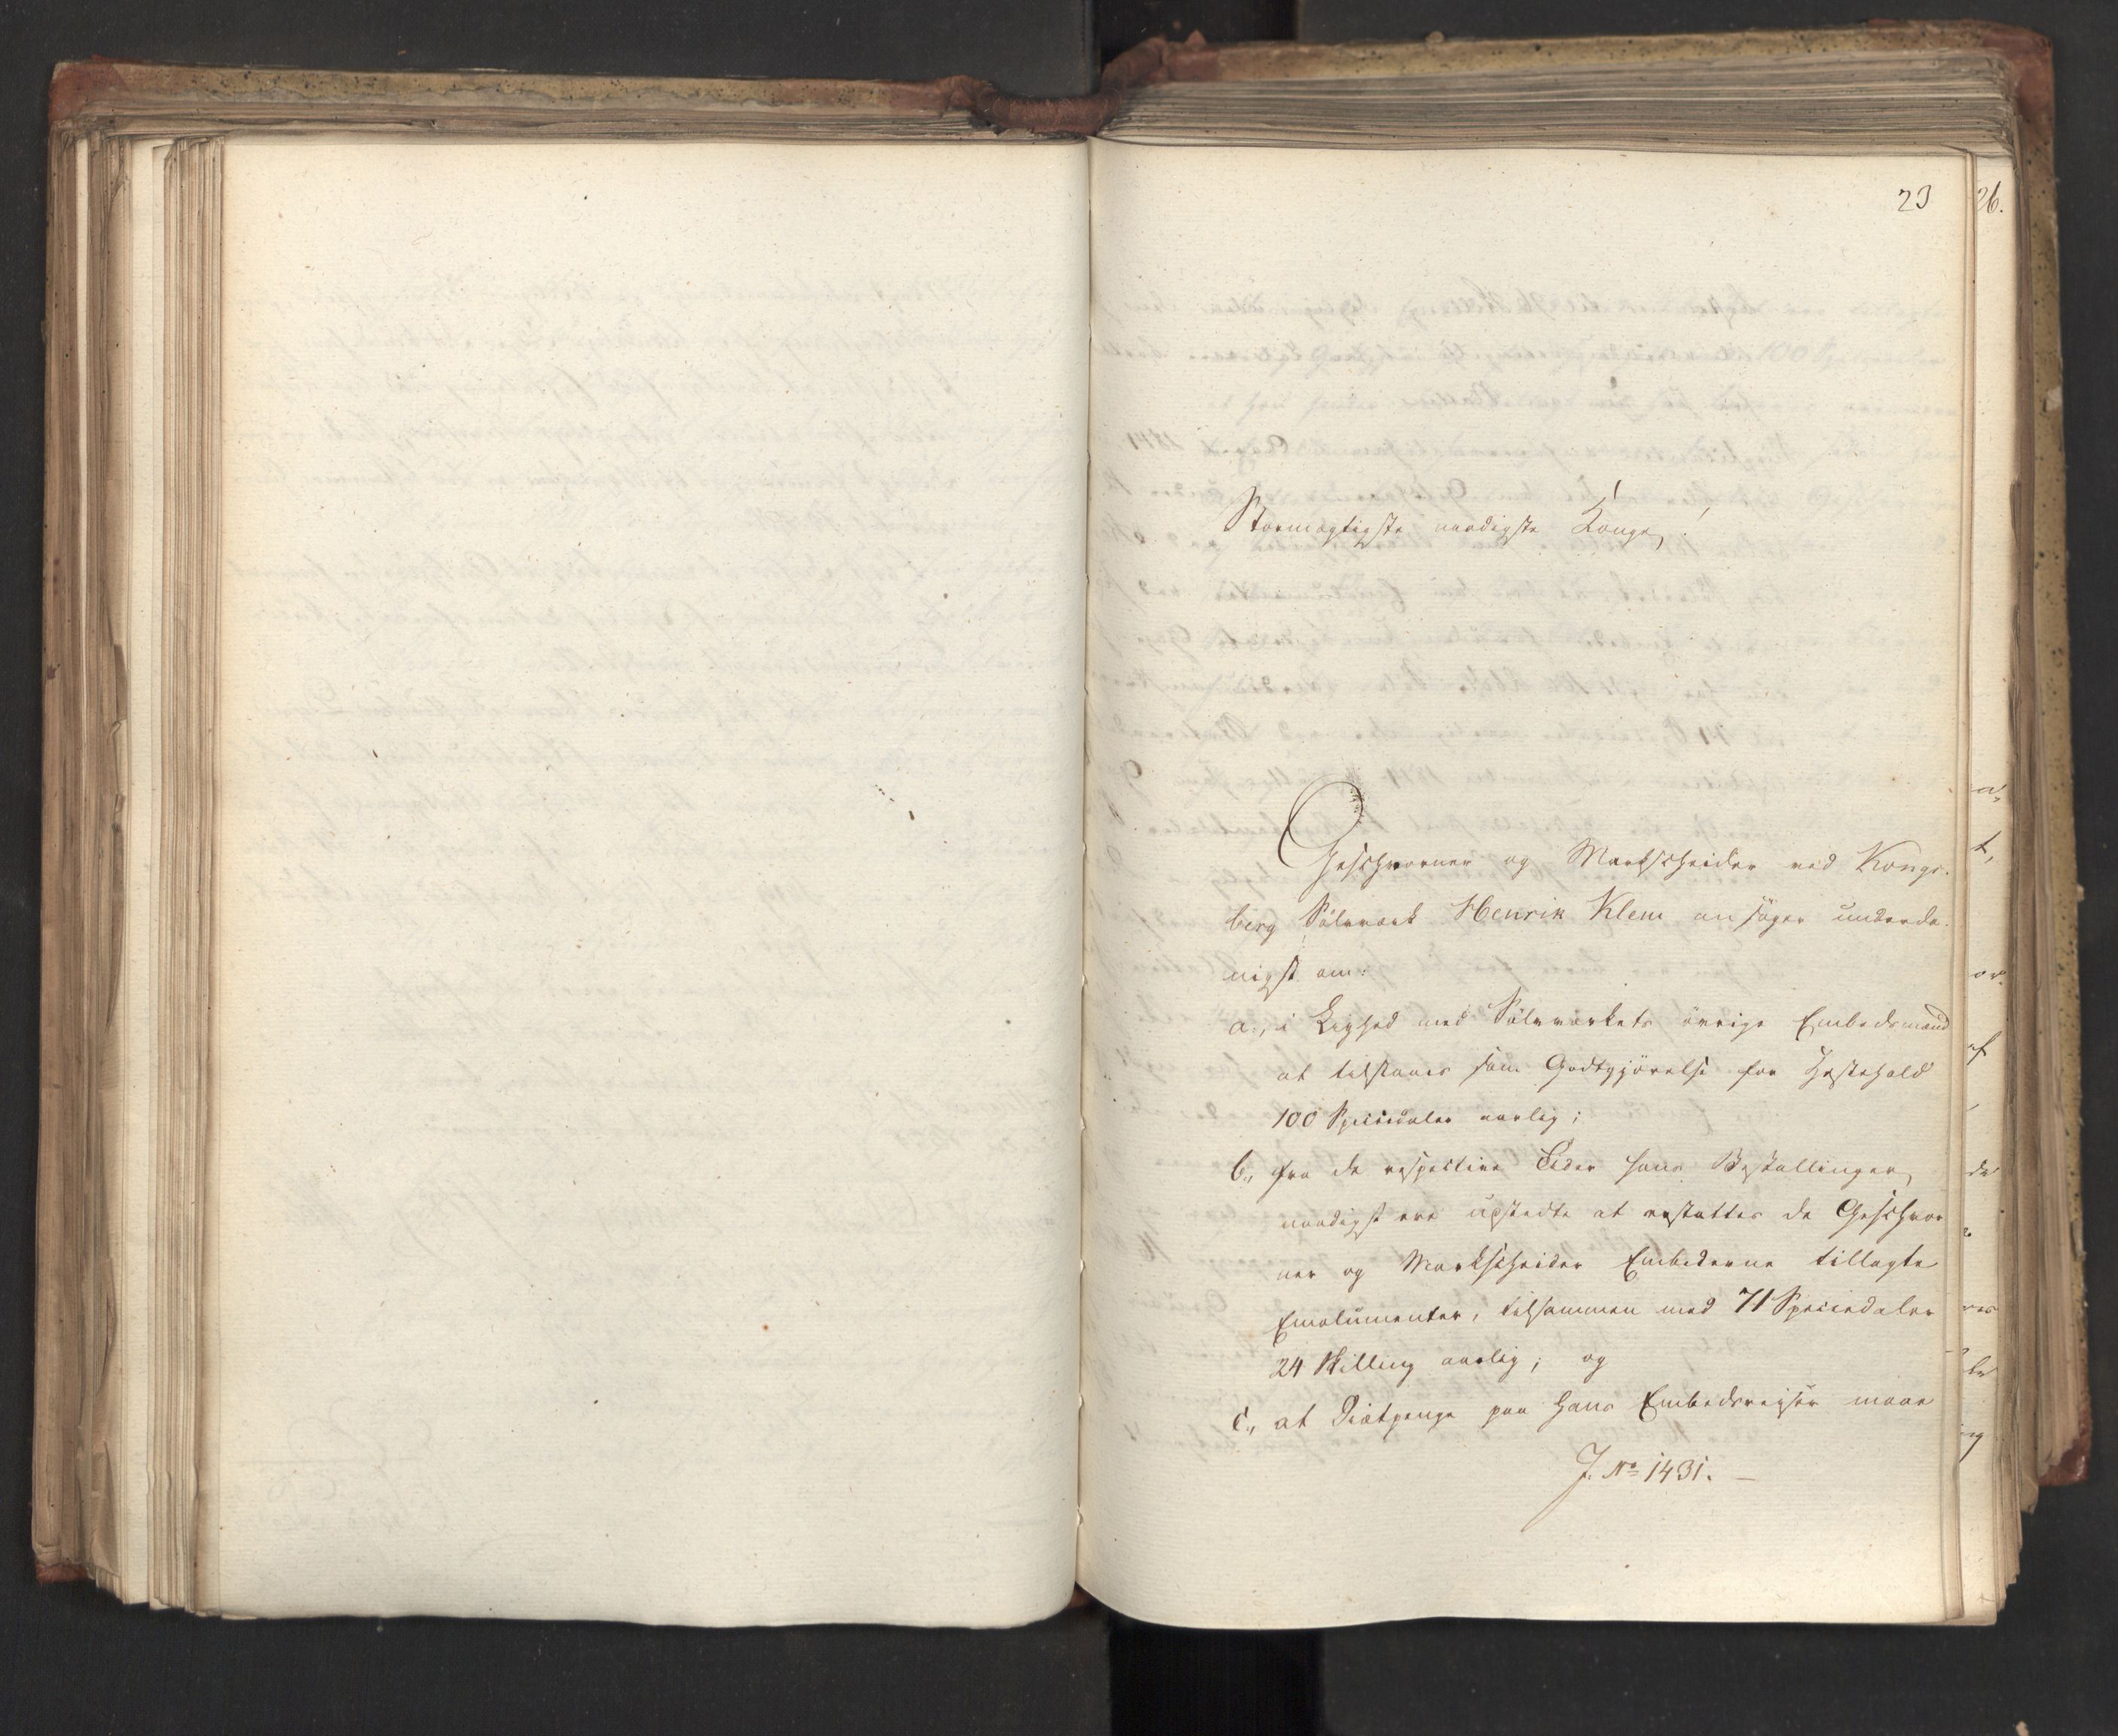 23
26.
Stormægtigste naadigste Konge!
Geschworner og Markscheider ved Kongs-
berg Sölvværk Henrik Klem ansöger underda-
nigst om:
a., i Lighed med Sölvværkets övrige Embedsmænd
at tilstaaes som Godtgjörelse for Hestehold
100 Speciedaler aarlig;
b., fra de respective Tider hans Bestallinger
naadigst ere udstedte at erstattes de Geschwor-
ner og Markscheider Embederne tillagte
Emolumenter, tilsammen med 71 Speciedaler
24 Skilling aarlig; og
c., at Diætpenge paa hans Embedsreiser maae
J. No 1431. —